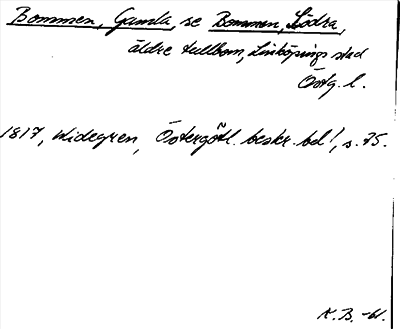 Bommen, Gamla, se Bommen, Södra,
äldre tullbom, Linköpings stad
Östg. l.
1817, Widegren, Östergötl. beskr. bd 1, s. 75.
K. B. -61.